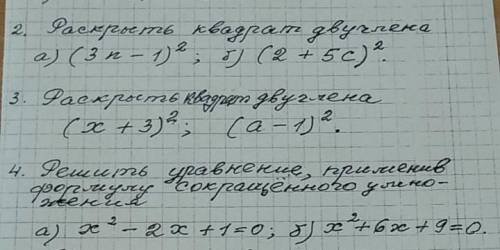 2. Раскрыть квадрат двучлена
а) (3n - 1)²; б) (2 + 5c)².
3. Раскрыть квадрат двучлена
(x + 3)²; (a - 1)².
4. Решить уравнение, применив
формулу сокращённого умно-
жения
а) x² - 2x + 1 = 0; б) x² + 6x + 9 = 0.